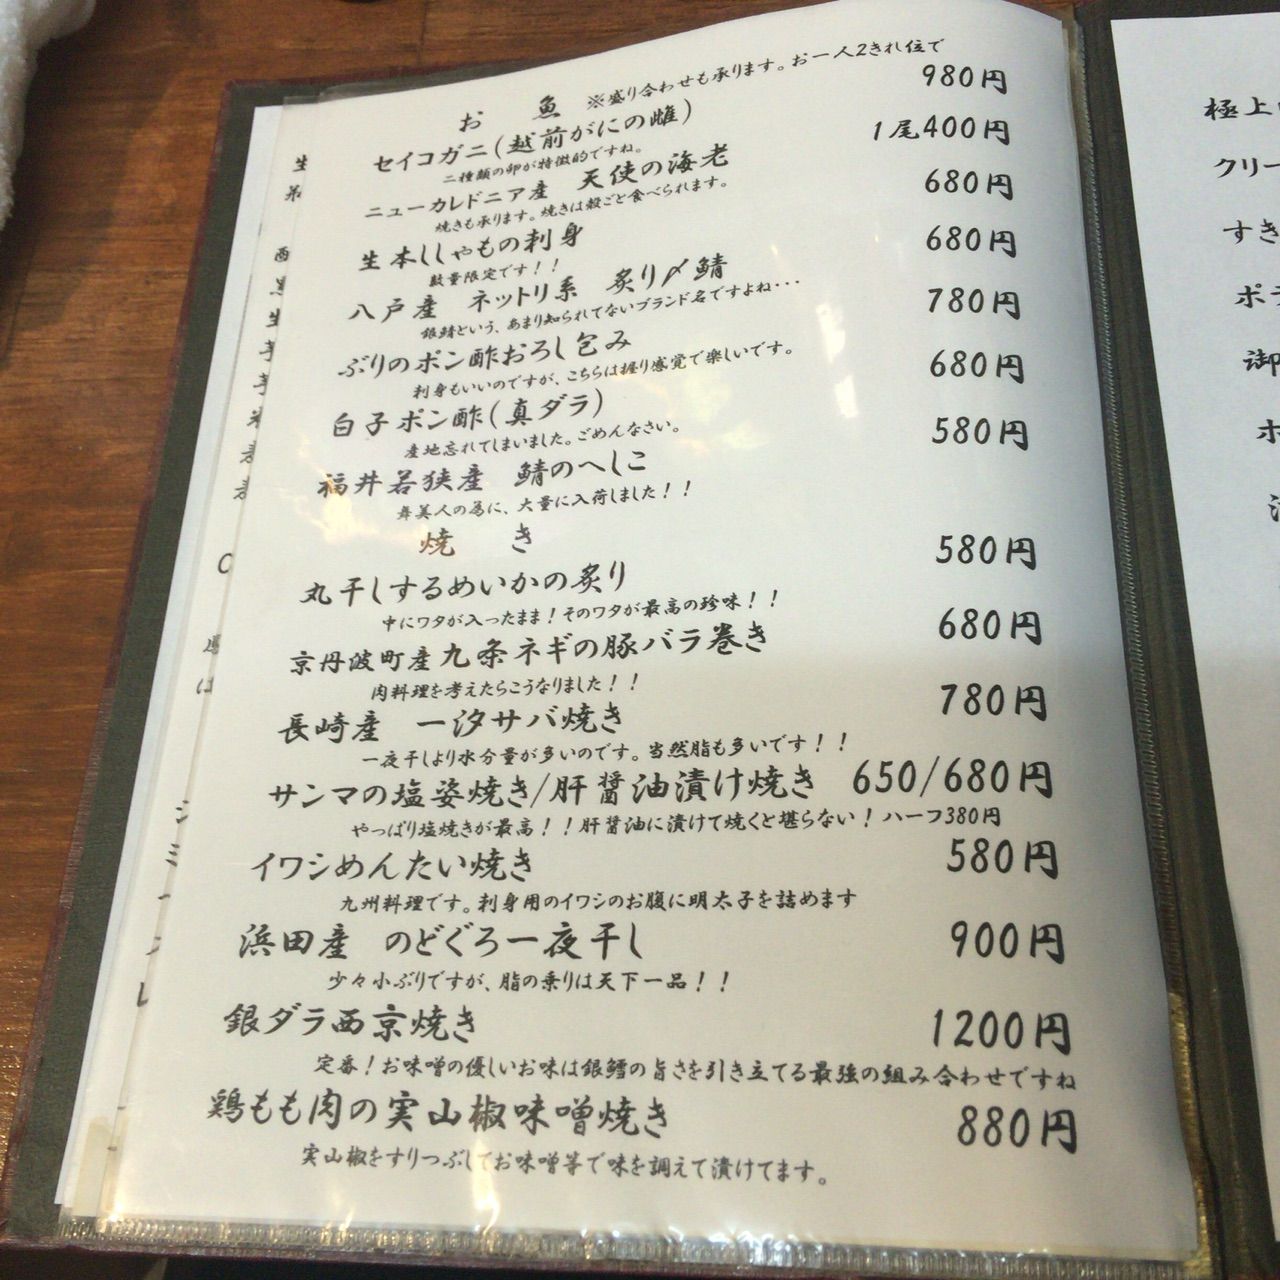 お 魚 ※盛り合わせも承ります。お一人2きれ位で
セイコガニ(越前がにの雌) 980円
二種類の卵が特徴的ですね。
ニューカレドニア産 天使の海老 1尾400円
焼きも承ります。焼きは殻ごと食べられます。
生本ししゃもの刺身 680円
数量限定です！！
八戸産 ネットリ系 炙り〆鯖 680円
銀鯖という、あまり知られてないブランド名ですよね・・・
ぶりのポン酢おろし包み 780円
刺身もいいのですが、こちらは握り感覚で楽しいです。
白子ポン酢(真ダラ) 680円
産地忘れてしまいました。ごめんなさい。
福井若狭産 鯖のへしこ 580円
舞美人の為に、大量に入荷しました！！
焼 き
丸干しするめいかの炙り 580円
中にワタが入ったまま！そのワタが最高の珍味！！
京丹波町産九条ネギの豚バラ巻き 680円
肉料理を考えたらこうなりました！！
長崎産 一汐サバ焼き 780円
一夜干しより水分量が多いのです。当然脂も多いです！！
サンマの塩姿焼き/肝醤油漬け焼き 650/680円
やっぱり塩焼きが最高！！肝醤油に漬けて焼くと堪らない！ハーフ380円
イワシめんたい焼き 580円
九州料理です。刺身用のイワシのお腹に明太子を詰めます
浜田産 のどぐろ一夜干し 900円
少々小ぶりですが、脂の乗りは天下一品！！
銀ダラ西京焼き 1200円
定番！お味噌の優しいお味は銀鱈の旨さを引き立てる最強の組み合わせですね
鶏もも肉の実山椒味噌焼き 880円
実山椒をすりつぶしてお味噌等で味を調えて漬けてます。
極上
クリー
すき
ポ
御
ホ